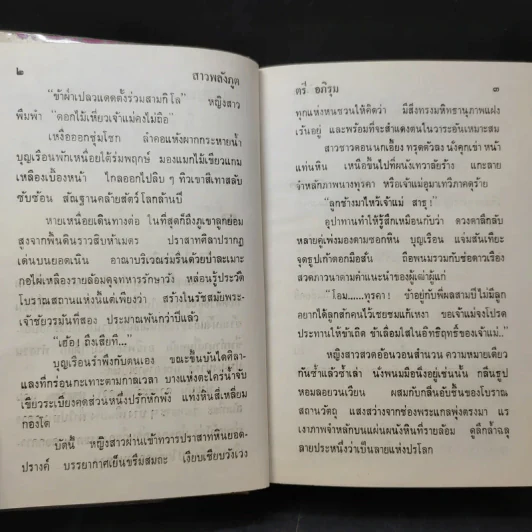 ๒ สาวพลังภูต
"ข้าฝ่าเปลวแดดตั้งร่วมสามกิโล" หญิงสาว
พึมพำ "ดอกไม้เหี่ยวเจ้าแม่คงไม่ถือ"
เหงื่อออกชุ่มโชก ลำคอแห้งผากกระหายน้ำ
บุญเรือนพักเหนื่อยใต้ร่มพฤกษ์ มองแมกไม้เขียวแกม
เหลืองเบื้องหน้า ไกลออกไปลิบ ๆ ทิวเขาสีเทาสลับ
ซับซ้อน สัณฐานคล้ายสัตว์โลกล้านปี
หายเหนื่อยเดินทางต่อ ในที่สุดก็ถึงภูเขาลูกย่อม
สูงจากพื้นดินราวสิบห้าเมตร ปราสาทศิลาปรากฏ
เด่นบนยอดเนิน อาณาบริเวณร่มรื่นด้วยป่าละเมาะ
กอไผ่เหลืองรายล้อมดุจทหารรักษาวัง หล่อนรู้ประวัติ
โบราณสถานแห่งนี้แต่เพียงว่า สร้างในรัชสมัยพระ-
เจ้าชัยวรมันที่สอง ประมาณพันกว่าปีแล้ว
"เฮ้อ! ถึงเสียที..."
บุญเรือนรำพึงกับตนเอง ขณะขึ้นบันไดศิลา-
แลงที่กร่อนกะเทาะตามกาลเวลา บางแห่งตะไคร่น้ำจับ
เขียวระเบียงคดส่วนหนึ่งปรักหักพัง แท่งหินสี่เหลี่ยม
ก่องโต
บัดนี้ หญิงสาวผ่านเข้าทวารปราสาทหินยอด-
ปรางค์ บรรยากาศเย็นขรึมสมถะ เงียบเชียบวังเวง
ตรี อภิรุม ๓
ทุกแห่งหนชวนให้คิดว่า มีสิ่งทรงมหิทธานุภาพแฝง
เร้นอยู่ และพร้อมที่จะสำแดงตนในวาระอันเหมาะสม
สาวชาวคอนนกเอี้ยง ทรุดตัวลง นั่งคุกเข่าหน้า
แท่นหิน เหนือขึ้นไปที่ผนังเทวาลัยร้าง แกะสลาย
จำหลักภาพนางทุรคา หรือเจ้าแม่อุมาเทวีภาคดุร้าย
"ลูกช้างมาไหว้เจ้าแม่ สาธุ!"
อุปาทานทำให้รู้สึกเหมือนกับว่า ดวงตาลึกลับ
หลายคู่เพ่งมองตามซอกหิน บุญเรือน แจ่มสันเทียะ
จุดธูปเก้าดอกมือสั่น ถือพนมรวมกับช่อดาวเรือง
สวดภาวนาตามคำแนะนำของผู้เฒ่าผู้แก่
"โอม.....ทุรคา! ข้าอยู่กับพี่ผลสามปีไม่มีลูก
อยากได้ลูกสักคนไว้เชยชมแก้เหงา ขอเจ้าแม่จงโปรด
ประทานให้ข้าเถิด ข้าเลื่อมใสในอิทธิฤทธิ์ของเจ้าแม่..."
หญิงสาวสวดอ้อนวอนสำนวน ความหมายเดียว
กันซ้ำแล้วซ้ำเล่า นั่งพนมมือนิ่งอยู่เช่นนั้น กลิ่นธูป
หอมลอยวนเวียน ผสมกับกลิ่นอับชื้นของโบราณ
สถานวัตถุ แสงสว่างจากช่องพระแกลพุ่งตรงมา แร
เงาภาพจำหลักบนแผ่นผนังหินที่รายล้อม ดูลึกล้ำฉลุ
ลายประหนึ่งว่าเป็นลายแห่งปรโลก